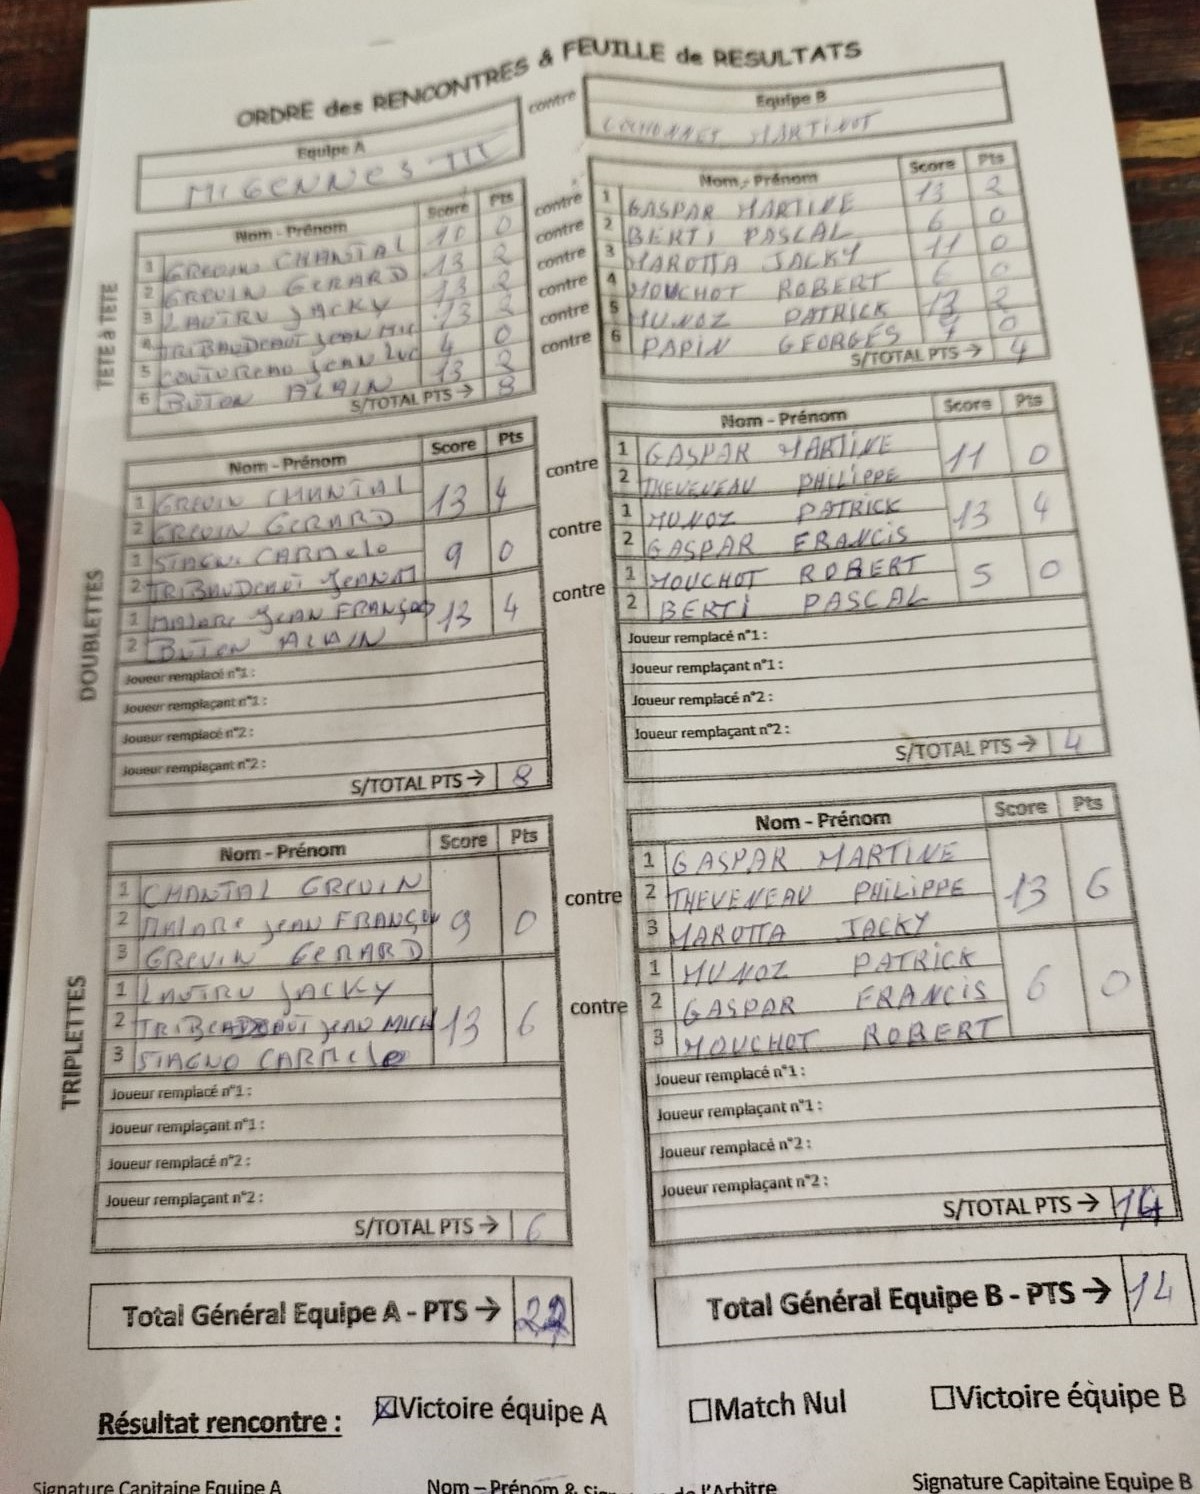 ORDRE des RENCONTRES & FEUILLE de RESULTATS
Equipe A
contre
Equipe B
MIGENNES III
MARTINOT
TETE à TETE
Nom - Prénom Score Pts
1 GREVIN CHANTAL 10 0
2 GREVIN GERARD 13 2
3 LAUTRU JACKY 13 2
4 TRIBAUDEAUT JEAN MIC 13 2
5 COUTUREAU JEAN LUC 4 0
6 BUTON ALAIN 13 2
S/TOTAL PTS → 8
contre
contre
contre
contre
contre
contre
Nom - Prénom Score Pts
1 GASPAR MARTINE 13 2
2 BERTI PASCAL 6 0
3 MAROTTA JACKY 11 0
4 MOUCHOT ROBERT 6 0
5 MUNOZ PATRICK 13 2
6 PAPIN GEORGES 0
S/TOTAL PTS → 4
DOUBLETTES
Nom - Prénom Score Pts
1 GREVIN CHANTAL 13 4
2 GREVIN GERARD
1 STAGNO CARMELO 9 0
2 TRIBAUDEAUT JEAN M
1 MALARE JEAN FRANÇOIS 13 4
2 BUTON ALAIN
Joueur remplacé n°1 :
Joueur remplaçant n°1 :
Joueur remplacé n°2 :
Joueur remplaçant n°2 :
S/TOTAL PTS → 8
contre
contre
contre
Nom - Prénom Score Pts
1 GASPAR MARTINE 11 0
2 THEVENEAU PHILIPPE
1 MUNOZ PATRICK 13 4
2 GASPAR FRANCIS
1 MOUCHOT ROBERT 5 0
2 BERTI PASCAL
Joueur remplacé n°1 :
Joueur remplaçant n°1 :
Joueur remplacé n°2 :
Joueur remplaçant n°2 :
S/TOTAL PTS → 4
TRIPLETTES
Nom - Prénom Score Pts
1 CHANTAL GREVIN
2 MALARE JEAN FRANÇOI 9 0
3 GREVIN GERARD
1 LAUTRU JACKY
2 JEAN MICH 13 6
3 STAGNO CARMELO
Joueur remplacé n°1 :
Joueur remplaçant n°1 :
Joueur remplacé n°2 :
Joueur remplaçant n°2 :
S/TOTAL PTS → 6
contre
contre
Nom - Prénom Score Pts
1 GASPAR MARTINE
2 THEVENEAU PHILIPPE 13 6
3 MAROTTA JACKY
1 MUNOZ PATRICK
2 GASPAR FRANCIS 6 0
3 MOUCHOT ROBERT
Joueur remplacé n°1 :
Joueur remplaçant n°1 :
Joueur remplacé n°2 :
Joueur remplaçant n°2 :
S/TOTAL PTS → 14
Total Général Equipe A - PTS → 22
Total Général Equipe B - PTS → 14
Résultat rencontre : ☒Victoire équipe A ☐Match Nul ☐Victoire équipe B
Signature Capitaine Equipe A
Nom – Prénom & de l'Arbitre
Signature Capitaine Equipe B